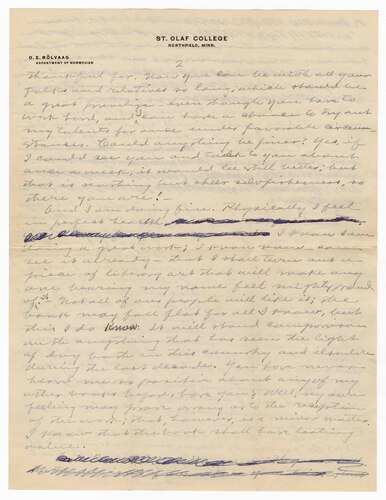 ST. OLAF COLLEGE
NORTHFIELD, MINN.
O. E. RÖLVAAG
DEPARTMENT OF NORWEGIAN
2
thankful for. Now you can be with all your
folks and relatives so long, which should be
a great privilege. Even though you have to
work hard, and I can have a chance to try out
my talents for once under favorable circum-
stances. Could anything be finer? Yes, if
I could see you and talk to you about
once a week, it would be still better; but
that is nothing but sheer selfishness, so
there you are!
And I am doing fine. Physically I feel
in perfect health.
I know I am
doing great work; I know now - can
see it already - that I shall turn out a
piece of literary art that will make any
one bearing my name feel mighty proud
of it. Not all of our people will like it; the
book may fall flat for all I know, but
this I do know: It will stand comparison
with anything that has seen the light
of day both in this country and elsewhere
during the last decade. You have never
heard me so positive about any of my
other works before, have you? Well, my sure
feeling may prove wrong as to the reception
of the work; that, however, is a minor matter.
I know that the book shall have lasting
value.